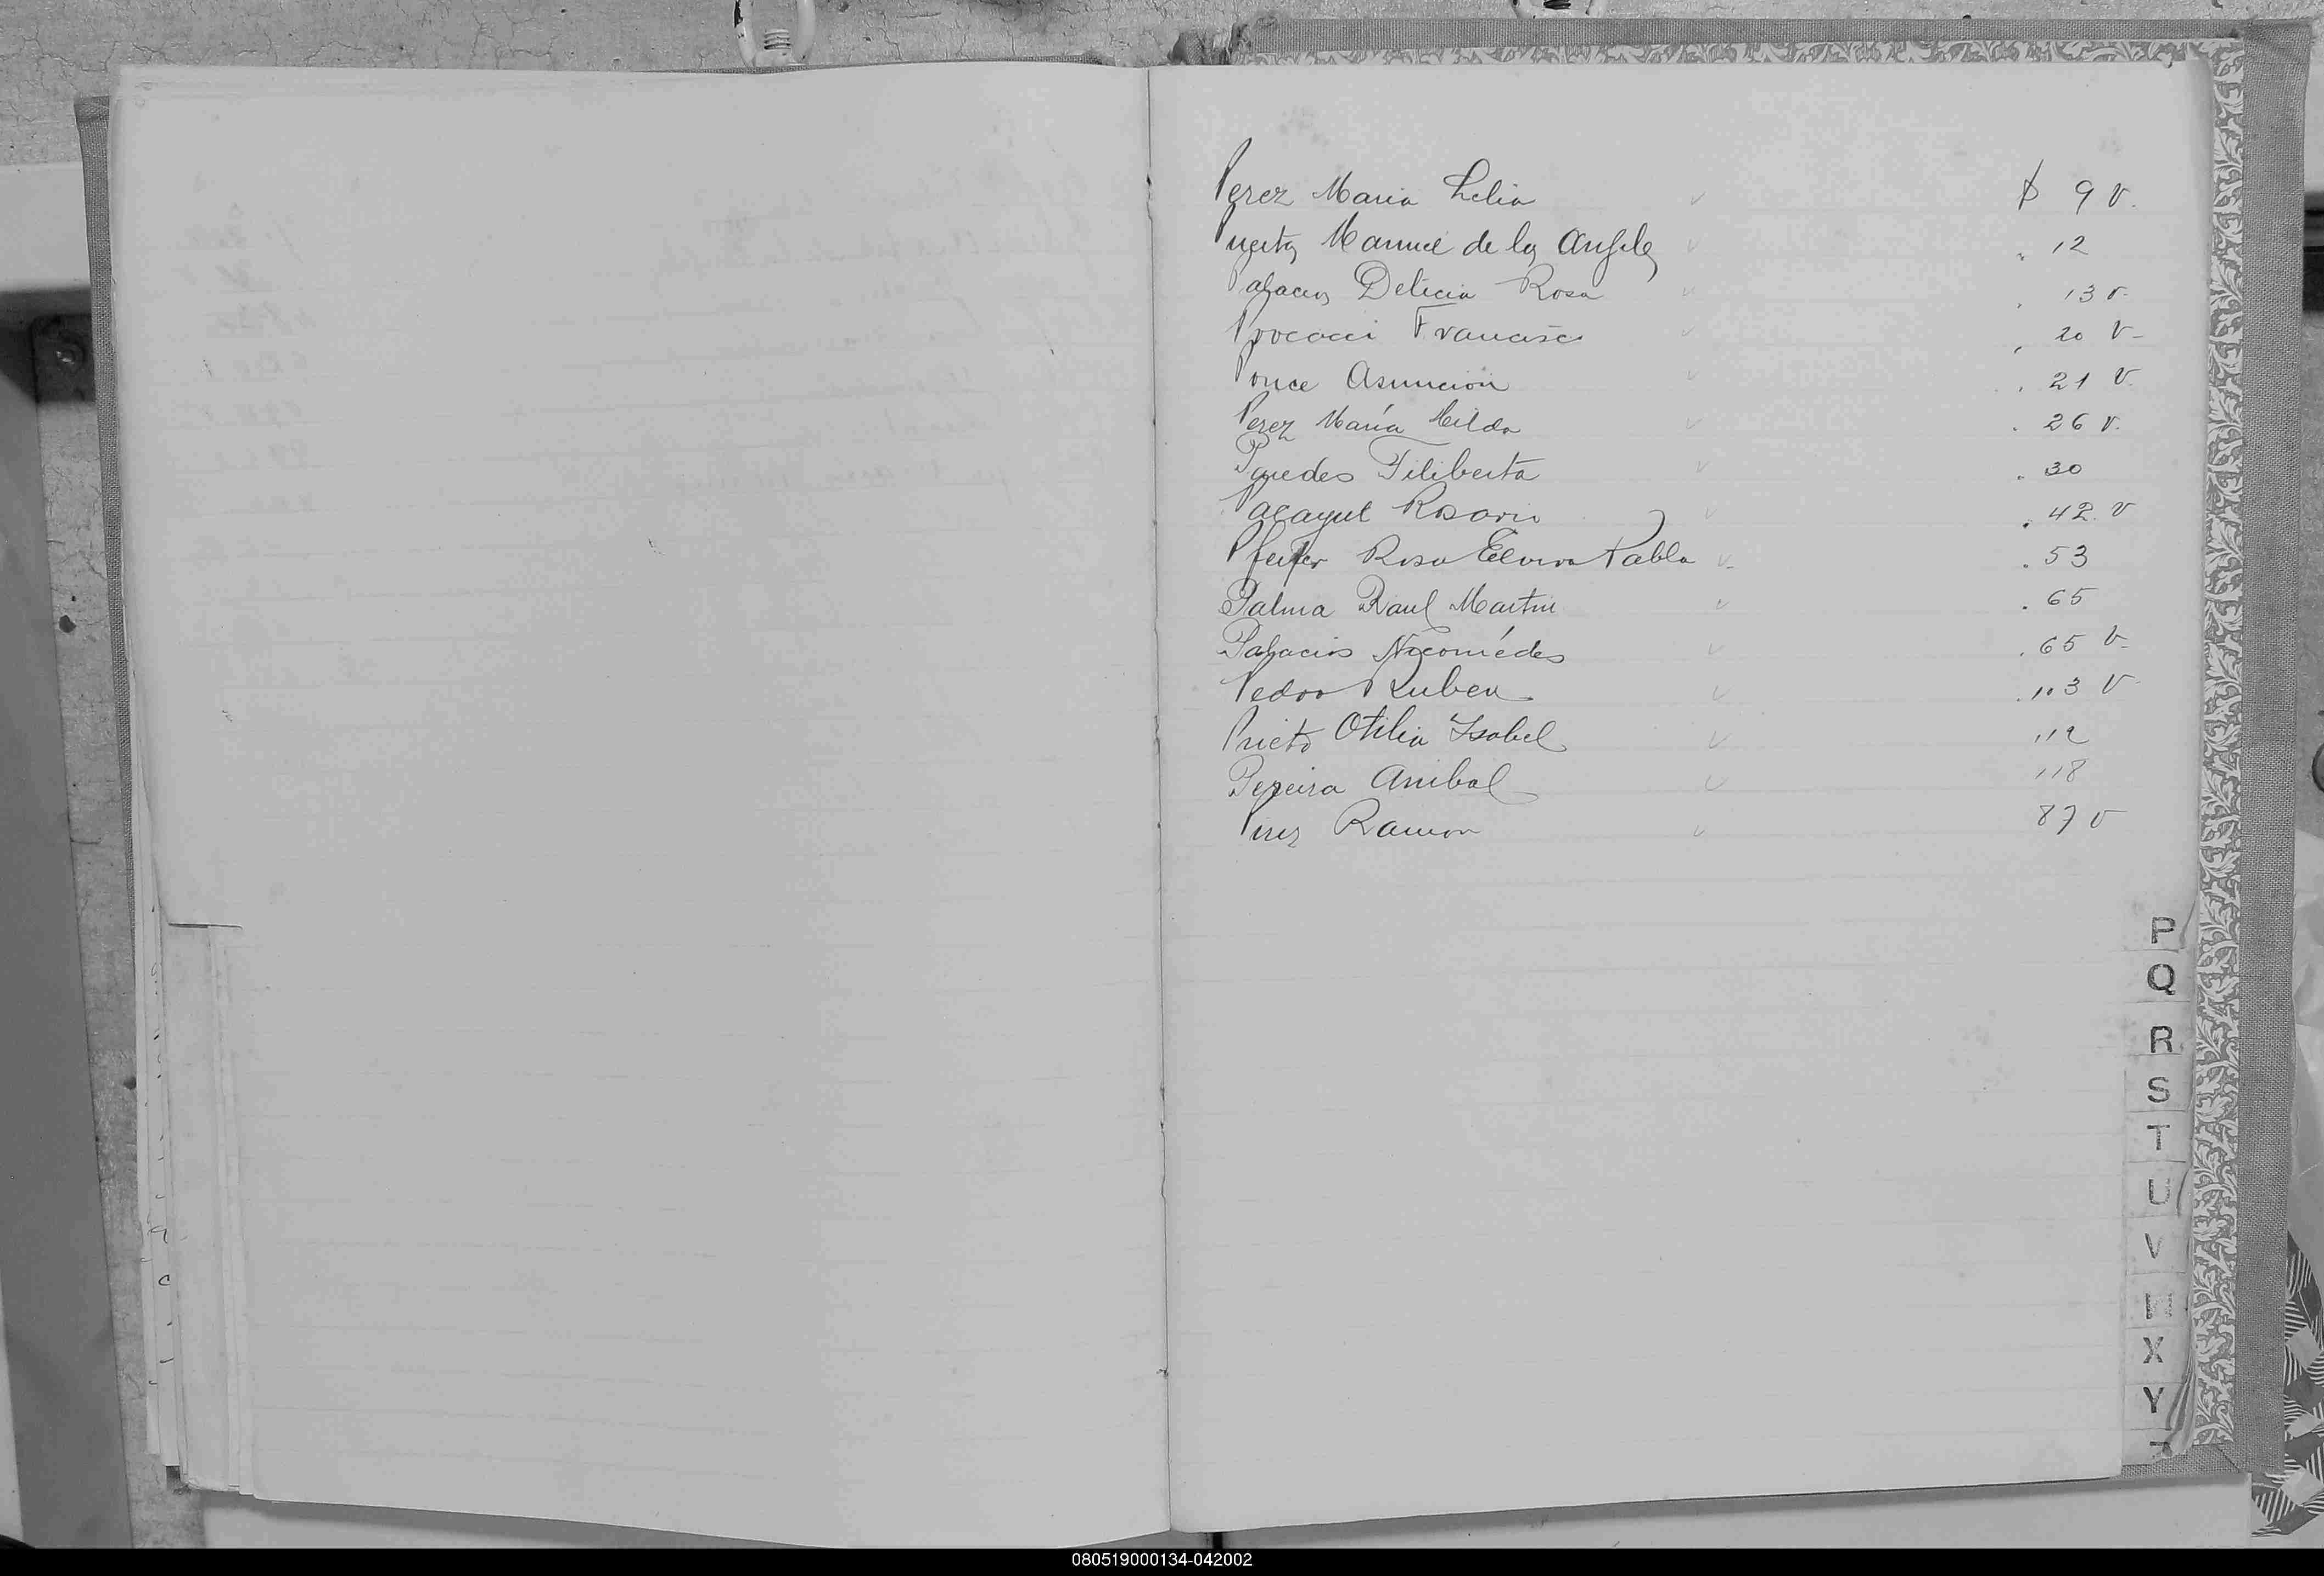 Perez Maria Lelia ✓ $ 9 v.
Puerta Manuel de los Angeles ✓ " 12
Palacios Delicia Rosa ✓ " 13 v.
Francisco ✓ " 20 v-
Ponce Asunción ✓ " 21 v.
Perez María Hilda ✓ " 26 v.
Paredes Filiberta ✓ " 30
Rosario ✓ " 42. v
Pfeifer Rosa Elvira Pabla ✓ " 53
Palma Raul Martin ✓ " 65
Palacios Nicomédes ✓ " 65 v-
Pedro Ruben ✓ v
Prieto Otilia Isabel ✓ 112
Pereira Anibal ✓ 118
Ramon ✓ 87 v
P
Q
R
S
T
U
V
X
Y
080519000134-042002